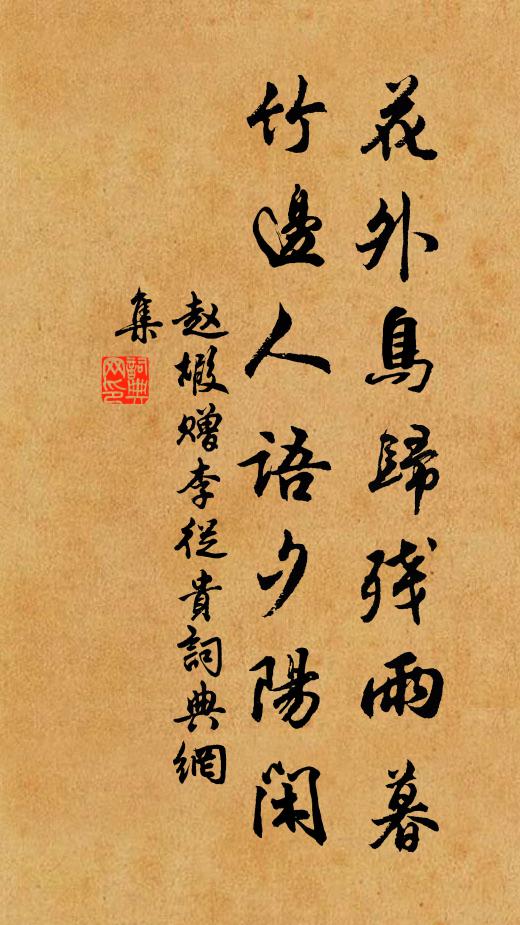 花外鳥歸残雨暮
竹邊人語夕陽闲
赵嘏赠李從貴詞典網
集
詞典网印